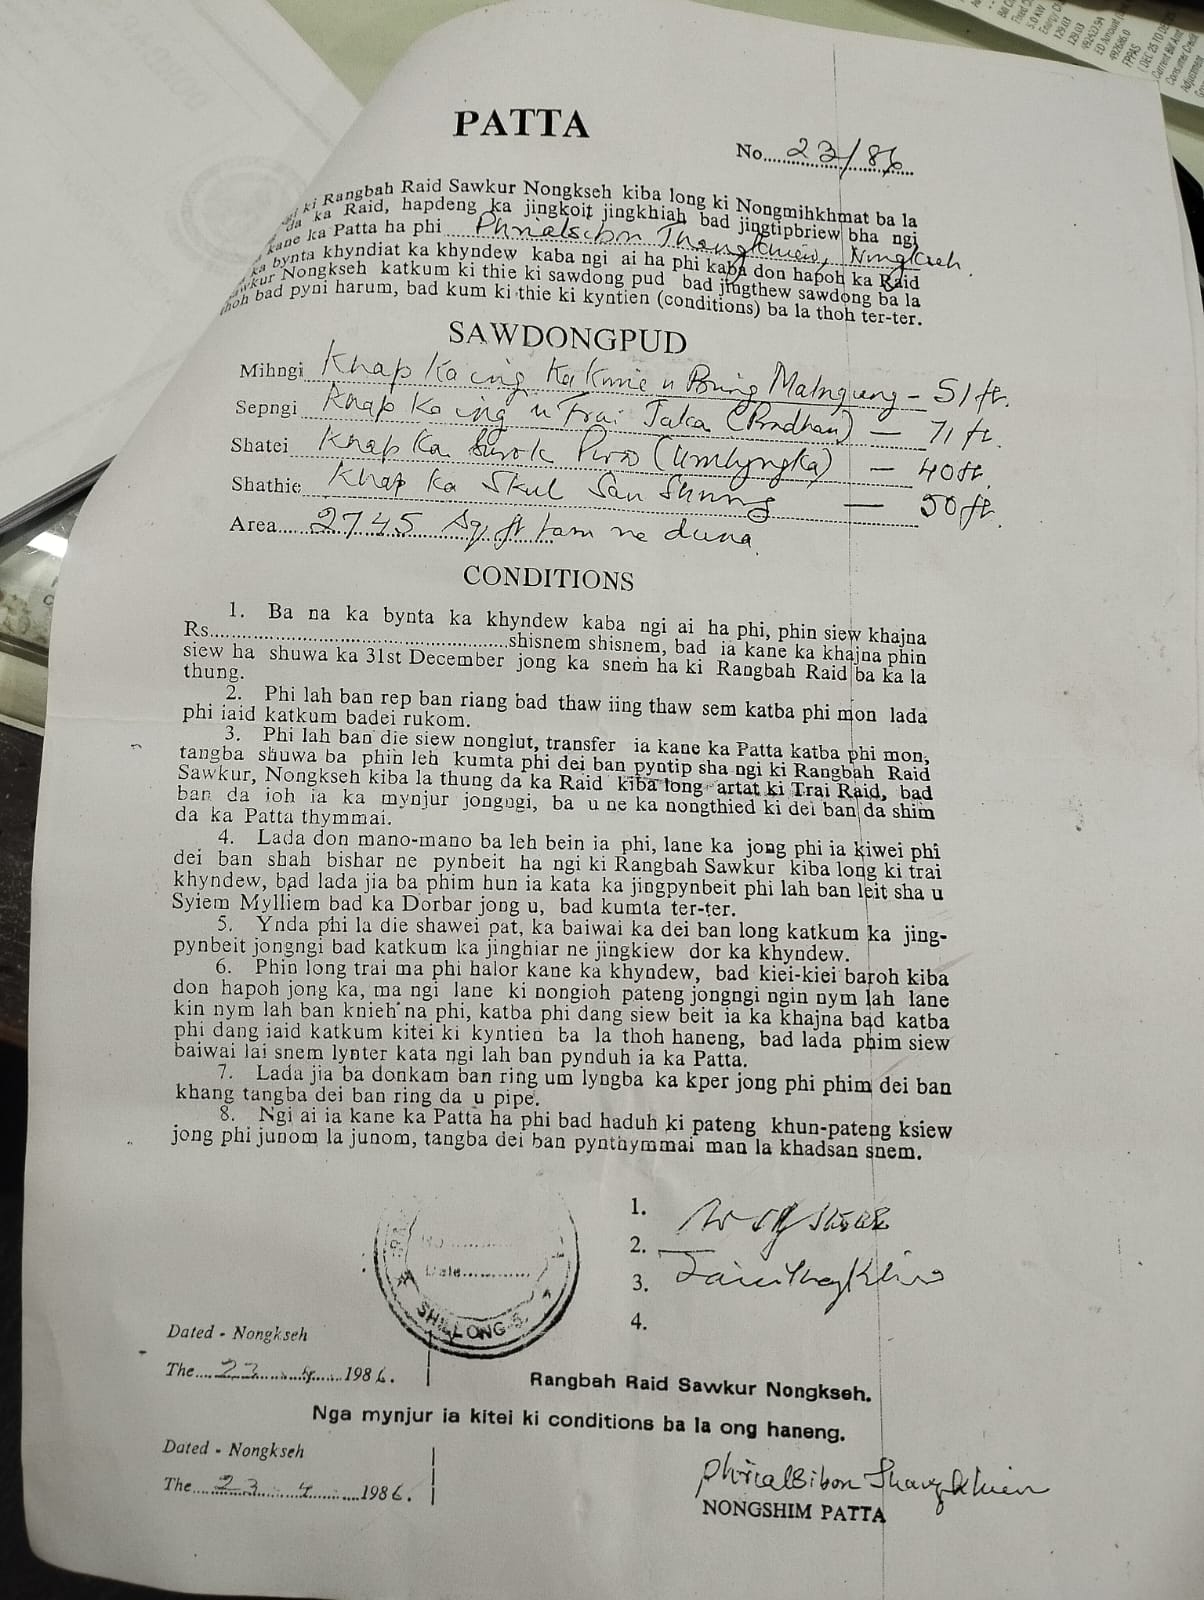 PATTA
No. 23/86
ki Rangbah Raid Sawkur Nongkseh kiba long ki Nongmihkhmat ba la
da ka Raid, hapdeng ka jingkoit jingkhiah bad jingtipbriew bha ngi
kane ka Patta ha phi Thangkhiew, Nongkseh.
ka bynta khyndiat ka khyndew kaba ngi ai ha phi kaba don hapoh ka Raid
Sawkur Nongkseh katkum ki thie ki sawdong pud bad jingthew sawdong ba la
thoh bad pyni harum, bad kum ki thie ki kyntien (conditions) ba la thoh ter-ter.
SAWDONGPUD
Mihngi Khap Ka ing Ka Kmie u - 51 ft.
Sepngi Khap Ka ing u Trai Jaka (Pradhan) — 71 ft.
Shatei Khap Ka Surok (Umlyngka) — 40 ft.
Shathie Khap Ka Skul San Shnong — 50 ft.
Area 2745 Sq. ft tam ne duna.
CONDITIONS
1. Ba na ka bynta ka khyndew kaba ngi ai ha phi, phin siew khajna
Rs..............................................shisnem shisnem, bad ia kane ka khajna phin
siew ha shuwa ka 31st December jong ka snem ha ki Rangbah Raid ba ka la
thung.
2. Phi lah ban rep ban riang bad thaw iing thaw sem katba phi mon lada
phi iaid katkum badei rukom.
3. Phi lah ban die siew nonglut, transfer ia kane ka Patta katba phi mon,
tangba shuwa ba phin leh kumta phi dei ban pyntip sha ngi ki Rangbah Raid
Sawkur, Nongkseh kiba la thung da ka Raid kiba long artat ki Trai Raid, bad
ban da ioh ia ka mynjur jongngi, ba u ne ka nongthied ki dei ban da shim
da ka Patta thymmai.
4. Lada don mano-mano ba leh bein ia phi, lane ka jong phi ia kiwei phi
dei ban shah bishar ne pynbeit ha ngi ki Rangbah Sawkur kiba long ki trai
khyndew, bad lada jia ba phim hun ia kata ka jingpynbeit phi lah ban leit sha u
Syiem Mylliem bad ka Dorbar jong u, bad kumta ter-ter.
5. Ynda phi la die shawei pat, ka baiwai ka dei ban long katkum ka jing-
pynbeit jongngi bad katkum ka jinghiar ne jingkiew dor ka khyndew.
6. Phin long trai ma phi halor kane ka khyndew, bad kiei-kiei baroh kiba
don hapoh jong ka, ma ngi lane ki nongioh pateng jongngi ngin nym lah lane
kin nym lah ban knieh na phi, katba phi dang siew beit ia ka khajna bad katba
phi dang iaid katkum kitei ki kyntien ba la thoh haneng, bad lada phim siew
baiwai lai snem lynter kata ngi lah ban pynduh ia ka Patta.
7. Lada jia ba donkam ban ring um lyngba ka kper jong phi phim dei ban
khang tangba dei ban ring da u pipe.
8. Ngi ai ia kane ka Patta ha phi bad haduh ki pateng khun-pateng ksiew
jong phi junom la junom, tangba dei ban pynthymmai man la khadsan snem.
1.
2.
3.
4.
No
Date
SHILLONG-5.
Dated - Nongkseh
The 23 1986.
Rangbah Raid Sawkur Nongkseh.
Nga mynjur ia kitei ki conditions ba la ong haneng.
Dated - Nongkseh
The 23 4 1986.
Phrialsibon Thangkhiew
NONGSHIM PATTA